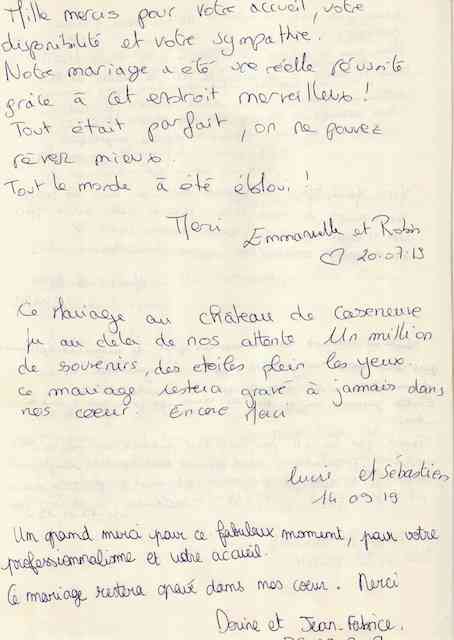 Mille mercis pour votre accueil, votre
disponibilité et votre sympathie.
Notre mariage a été une réelle réussite
grâce à cet endroit merveilleux !
Tout était parfait, on ne pouvez
rêver mieux.
Tout le monde à été ébloui !
Merci
Emmanuelle et Robin
♡ 20.07.19
Ce Mariage au château de Cazeneuve
fu au delà de nos attente Un million
de souvenirs, des etoiles plein les yeux.
ce mariage restera gravé à jamais dans
nos coeur. Encore Merci
Lucie et Sébastien
14 09 19
Un grand merci pour ce fabuleux moment, pour votre
professionnalisme et votre accueil.
Ce mariage restera gravé dans nos coeur. Merci
Dorine et Jean-Fabrice.